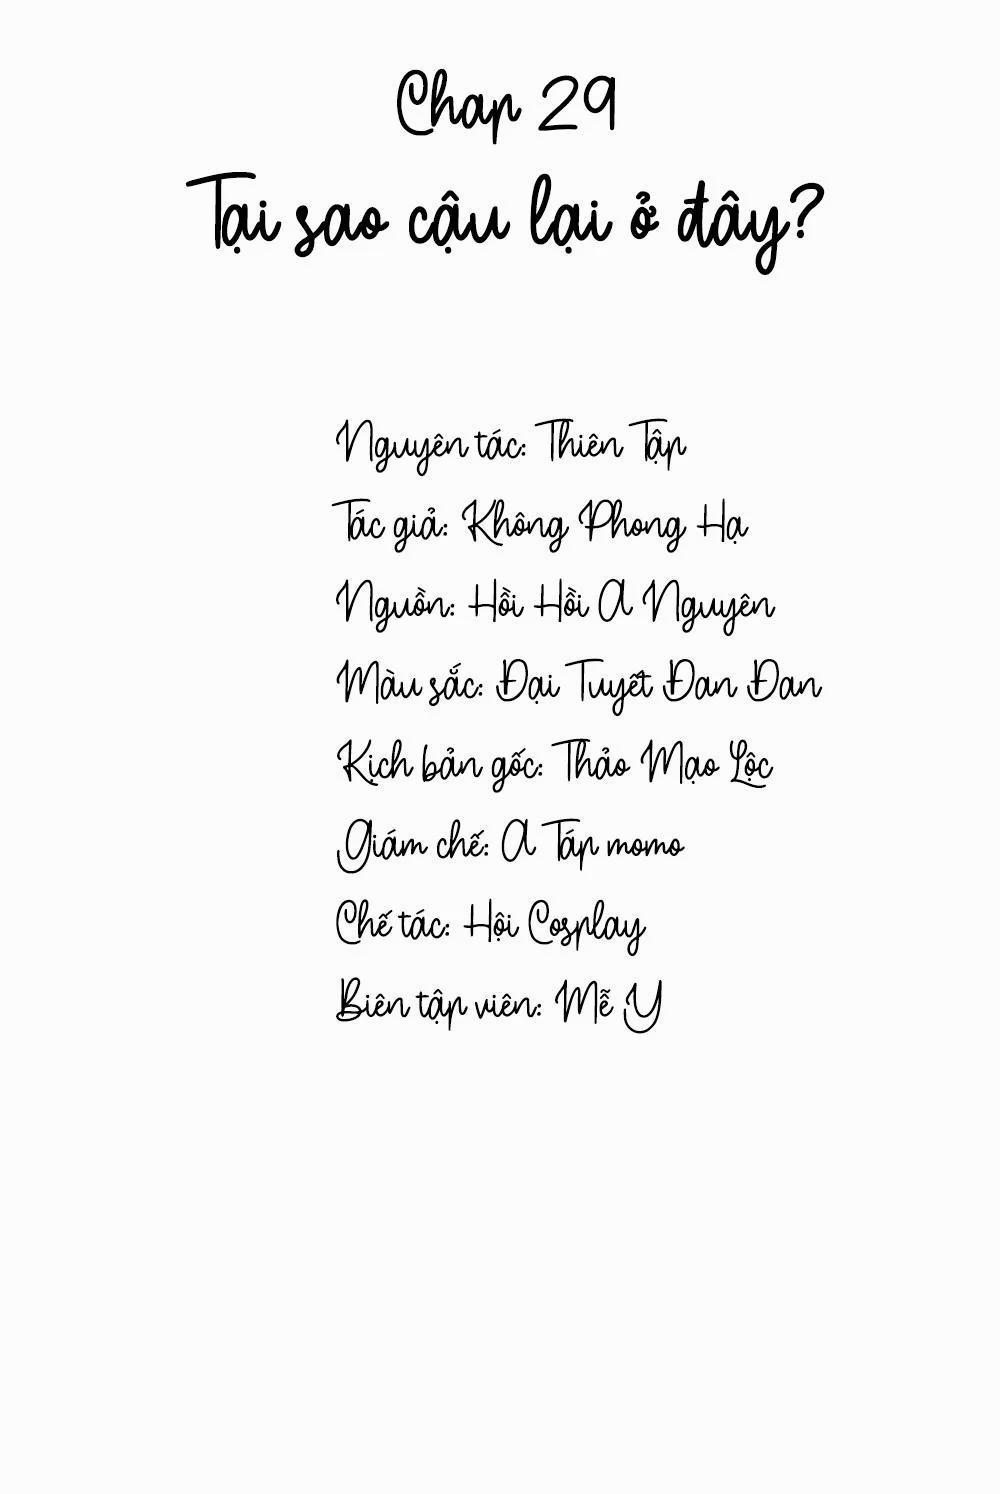 Chap 29
Tại sao cậu lại ở đây?
Nguyên tác: Thiên Tập
Tác giả: Không Phong Hạ
Nguồn: Hồi Hồi A Nguyên
Màu sắc: Đại Tuyết Đan Đan
Kịch bản gốc: Thảo Mạo Lộc
Giám chế: A Táp momo
Chế tác: Hội Cosplay
Biên tập viên: Mễ Y